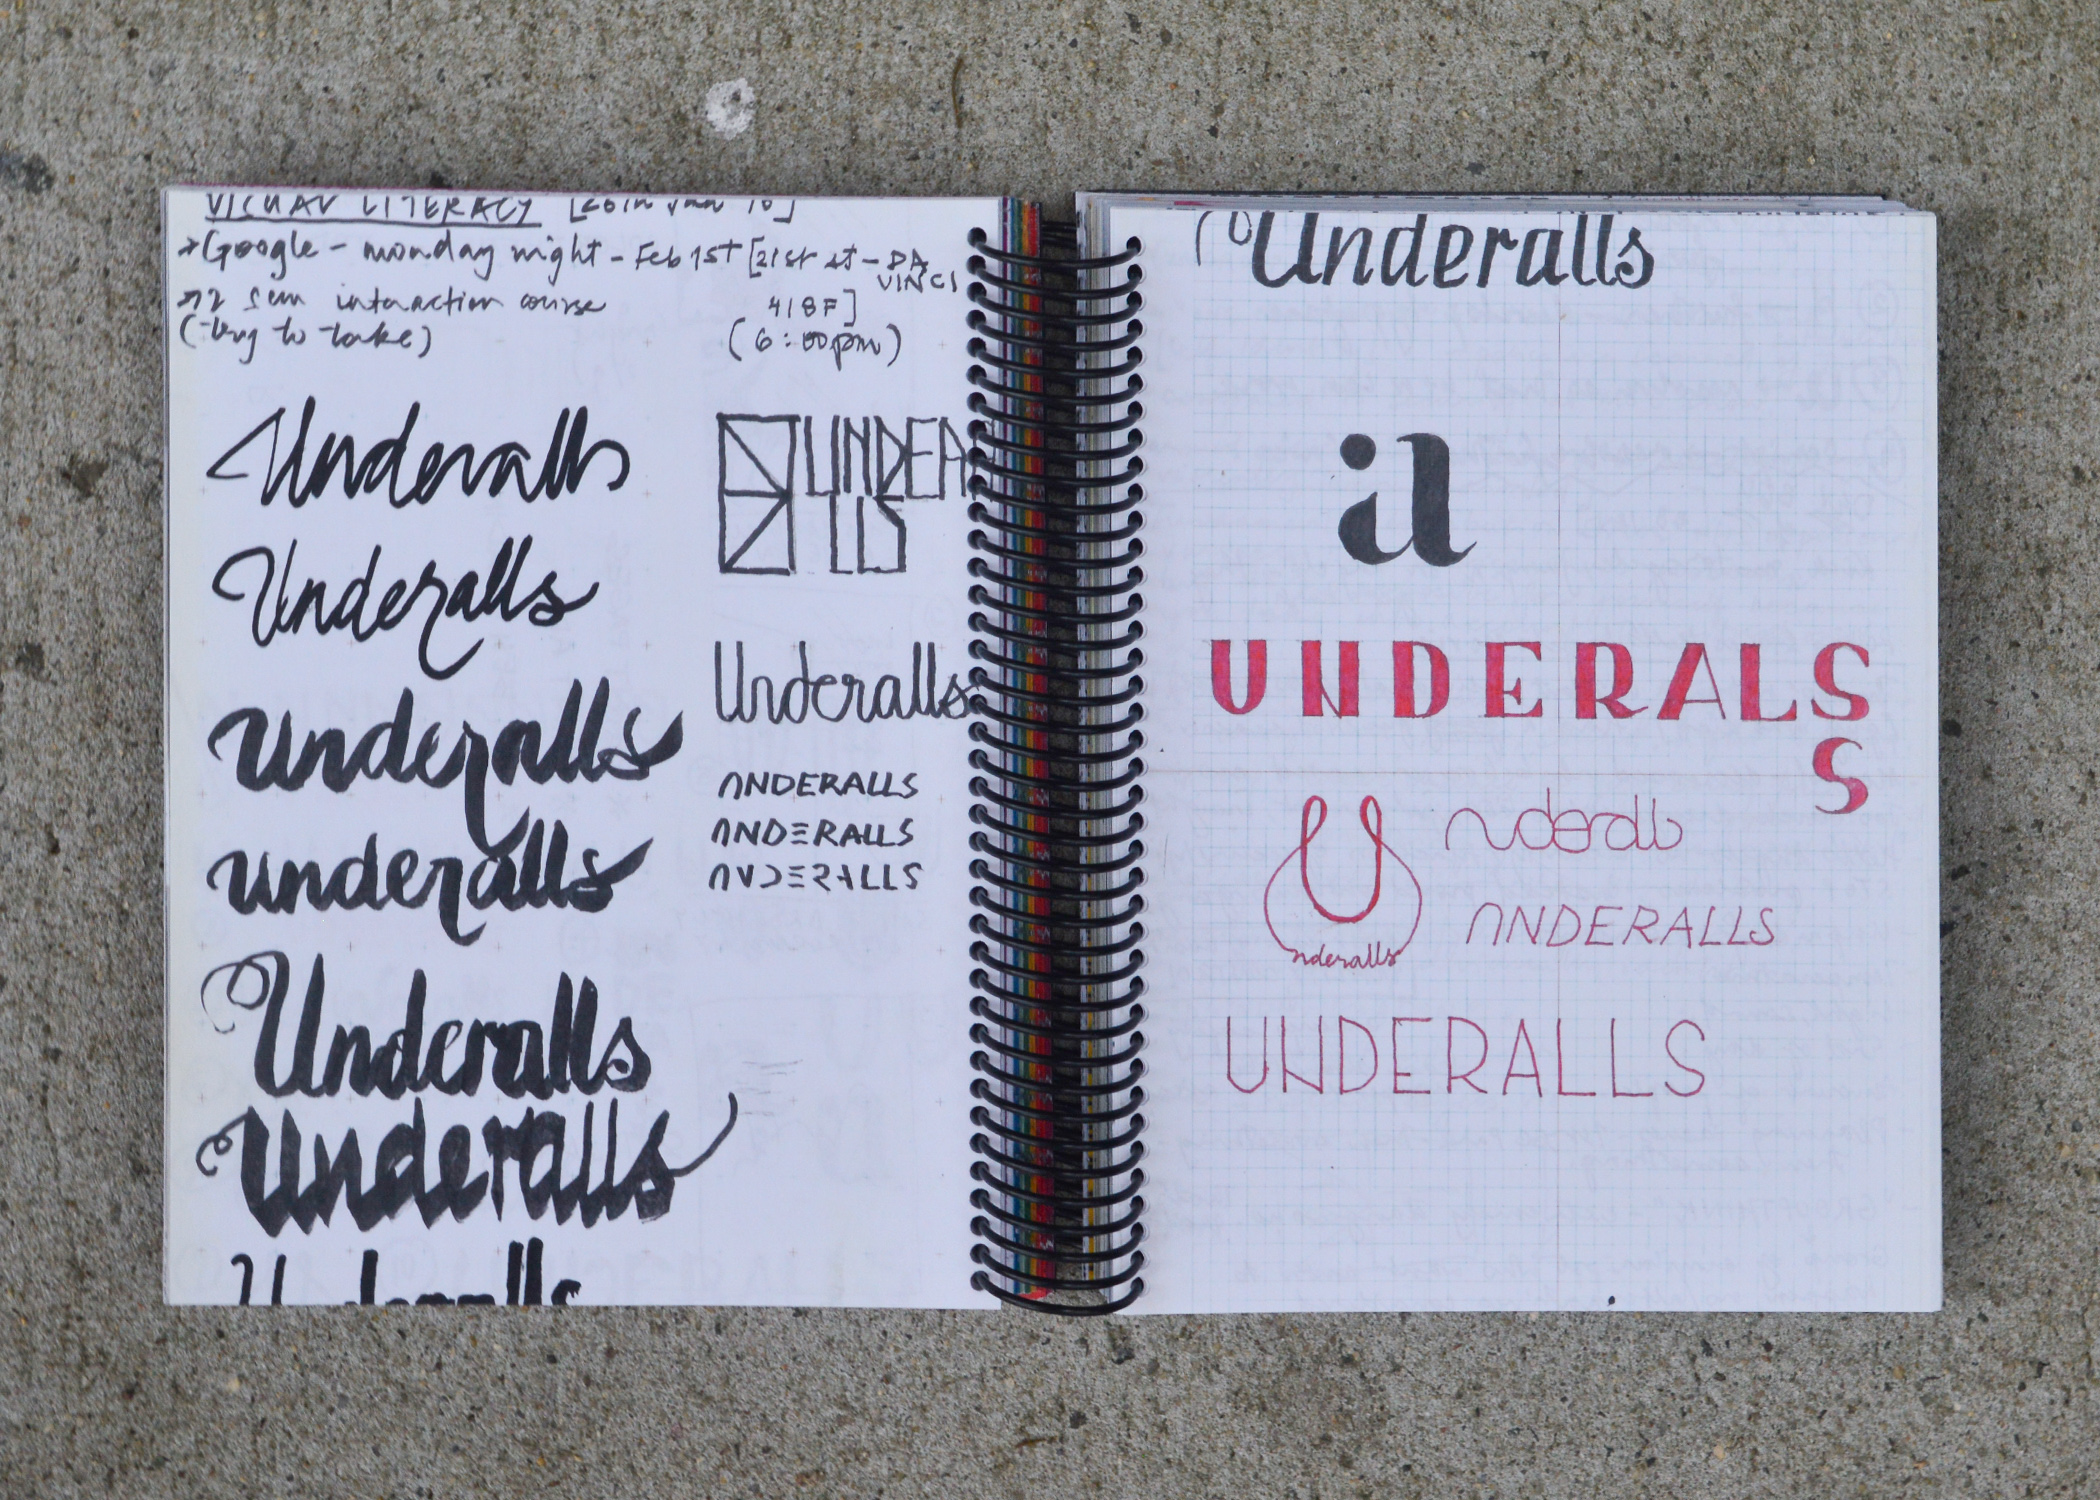 VISUAL LITERACY [26th Jan 16]
→ Google - monday night - Feb 1st [21st st - DA VINCI
418F]
(6:00pm)
→ 2 sem interaction course
(try to take)
Underalls
Underalls
Underalls
underalls
Underalls
Underalls
Underalls
UNDERA
LLS
Underalls
UNDERALLS
UNDERALLS
UNDERALLS
Underalls
a
UNDERALS
S
U
nderalls
underalls
UNDERALLS
UNDERALLS